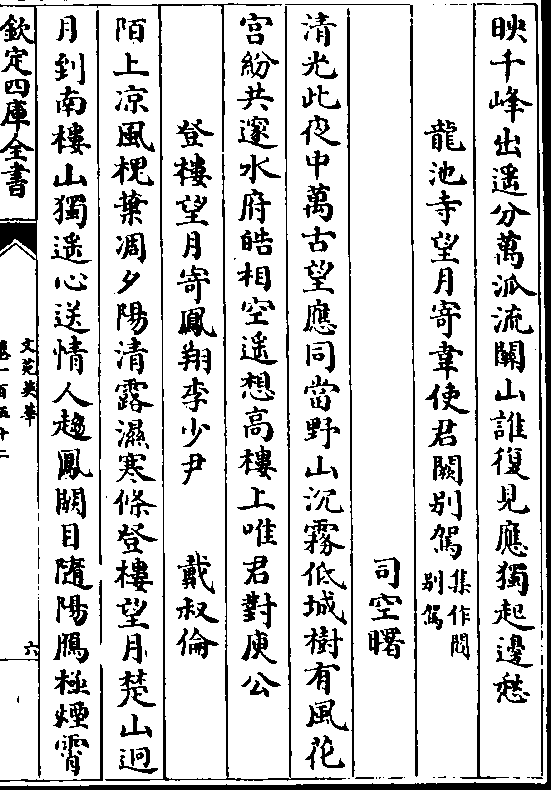 映千峰出遥分萬派流關山誰復見應獨起邊愁
龍池寺望月寄韋使君闕别駕集作閻别駕
司空曙
清光此夜中萬古望應同當野山沉霧低城樹有風花
宫紛共邃水府皓相空遥想高樓上唯君對庾公
登樓望月寄鳳翔李少尹 戴叔倫
陌上凉風槐葉凋夕陽清露濕寒條登樓望月楚山迥
月到南樓山獨遥心送情人趨鳳闕目隨陽鴈極煙霄
欽定四庫全書
文苑英華
卷一百五十二
六